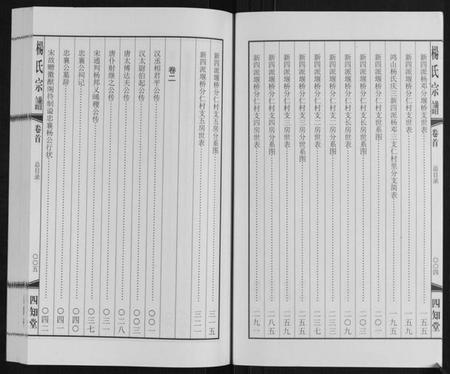 新四派杨邓堰桥分支世表 一五五
新四派堰桥分仁村支世表 一五九
鸿山杨氏三三新四派杨邓二支仁村里分支简表 一九五
新四派堰桥分仁村支世系图 一九九
新四派堰桥分仁村支 房世表 二〇三
新四派堰桥分仁村支 房分世系图 二〇九
新四派堰桥分仁村支 房世表 二一三
新四派堰桥分仁村支 房分世系图 二三三
新四派堰桥分仁村支 房世表 二五九
新四派堰桥分仁村支四房分世系图 二八五
新四派堰桥分仁村支四房世表 二九一
楊氏宗譜
卷首
总目录
〇〇四
四知堂
新四派堰桥分仁村支五房分系图 三一五
新四派堰桥分仁村支五房世表 三二一
卷二
汉丞相君平公传 〇〇一
汉太尉伯起公传 〇〇三
唐太傅达夫公传 〇二八
唐仆射继之公传 〇三一
宋通判杨邦乂雄稷公传 〇三七
忠襄公祠记 〇四〇
忠襄公墓辞 〇四一
宋故赠徽猷阁待制谥忠襄杨公行状 〇四二
楊氏宗譜
卷首
总目录
〇〇五
四知堂